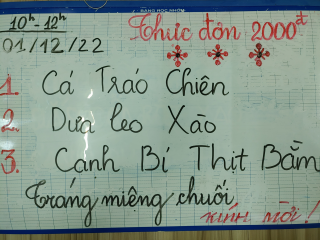 BẢNG HỌC NHÓM
10h - 12h
Thực đơn 2000đ
01/12/22
1. Cá Tráo Chiên
2. Dưa leo Xào
3. Canh Bí Thịt Bằm
Tráng miệng chuối
kính mời!